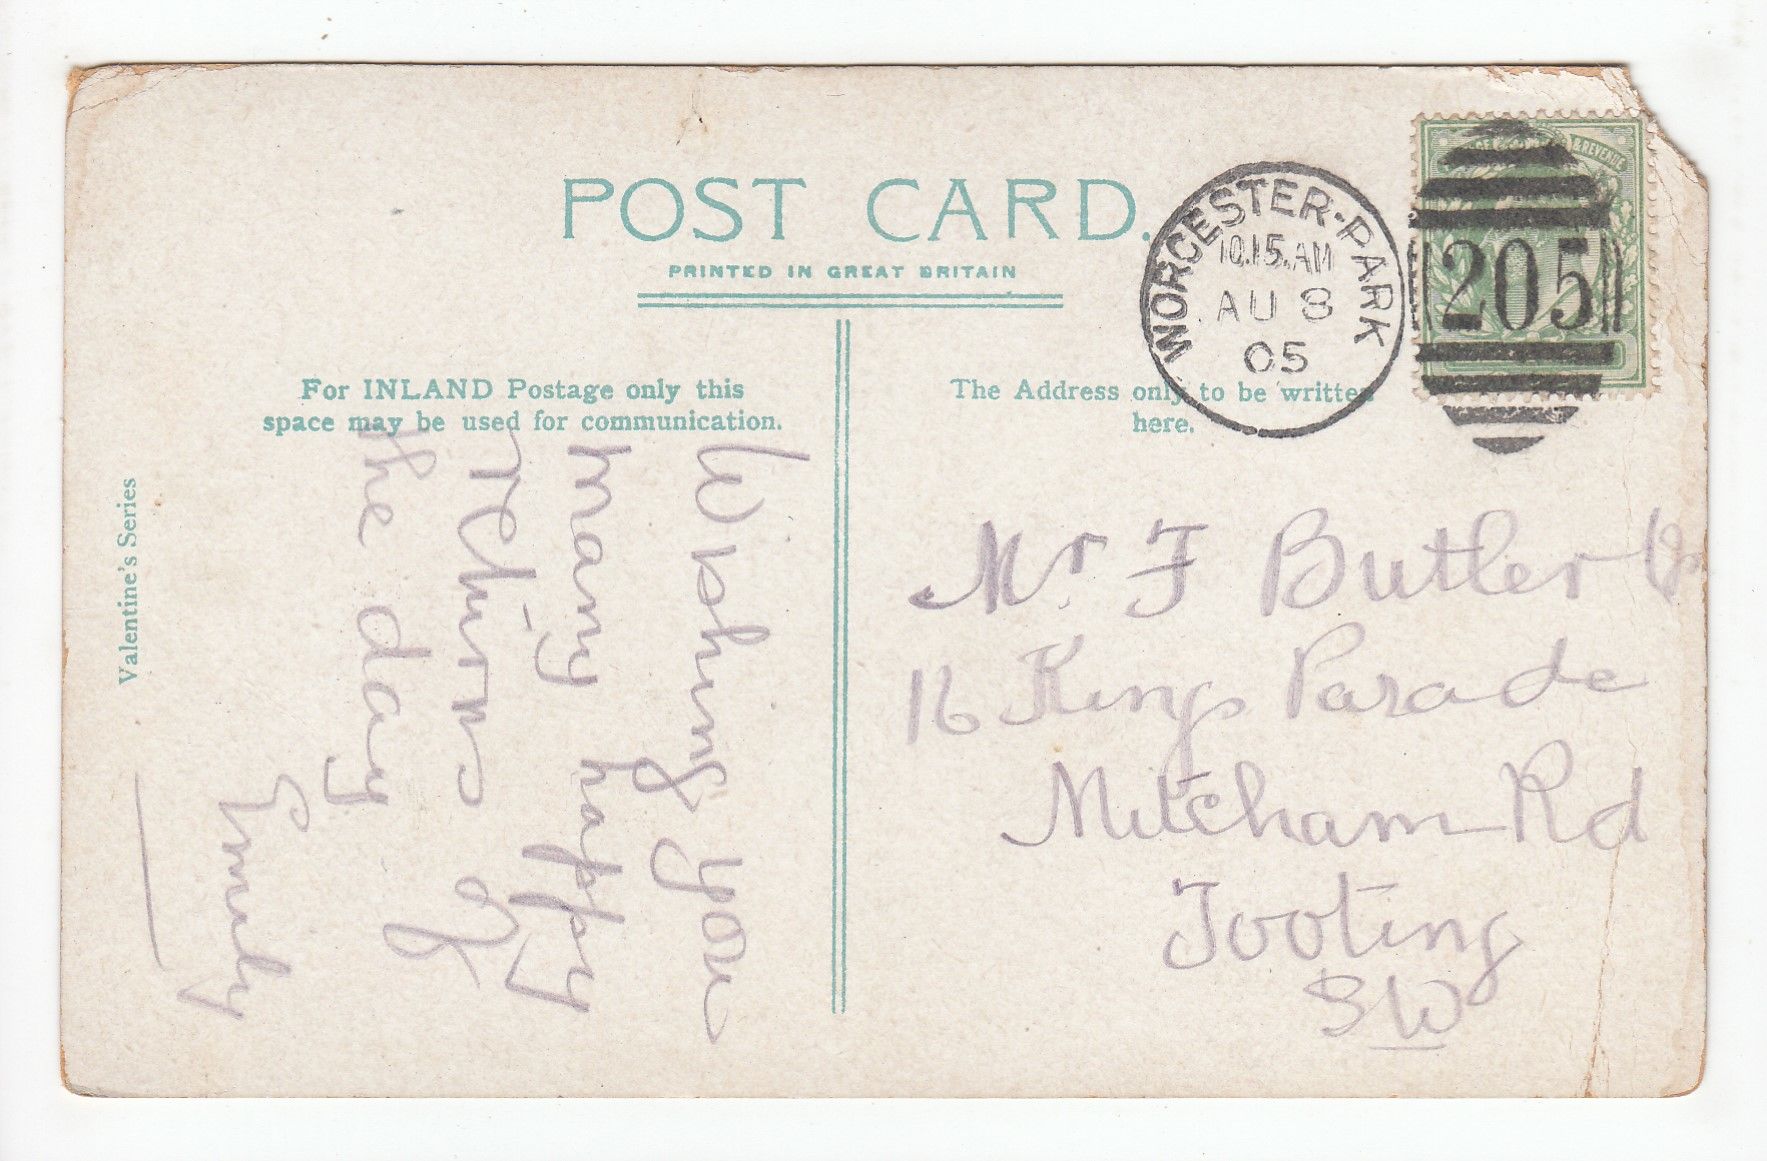 POST CARD.
PRINTED IN GREAT BRITAIN
For INLAND Postage only this
space may be used for communication.
The Address only to be written
here.
WORCESTER-PARK
10.15.AM
AU 8
05
& REVENUE
205
Valentine's Series
Wishing you
many happy
returns of
the day
Emily
Mr F Butler
16 Kings Parade
Mitcham Rd
Tooting
SW